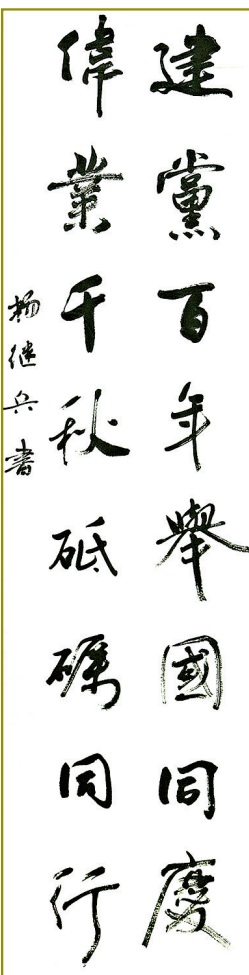 建黨百年舉國同慶
偉業千秋砥礪同行
杨继兵書